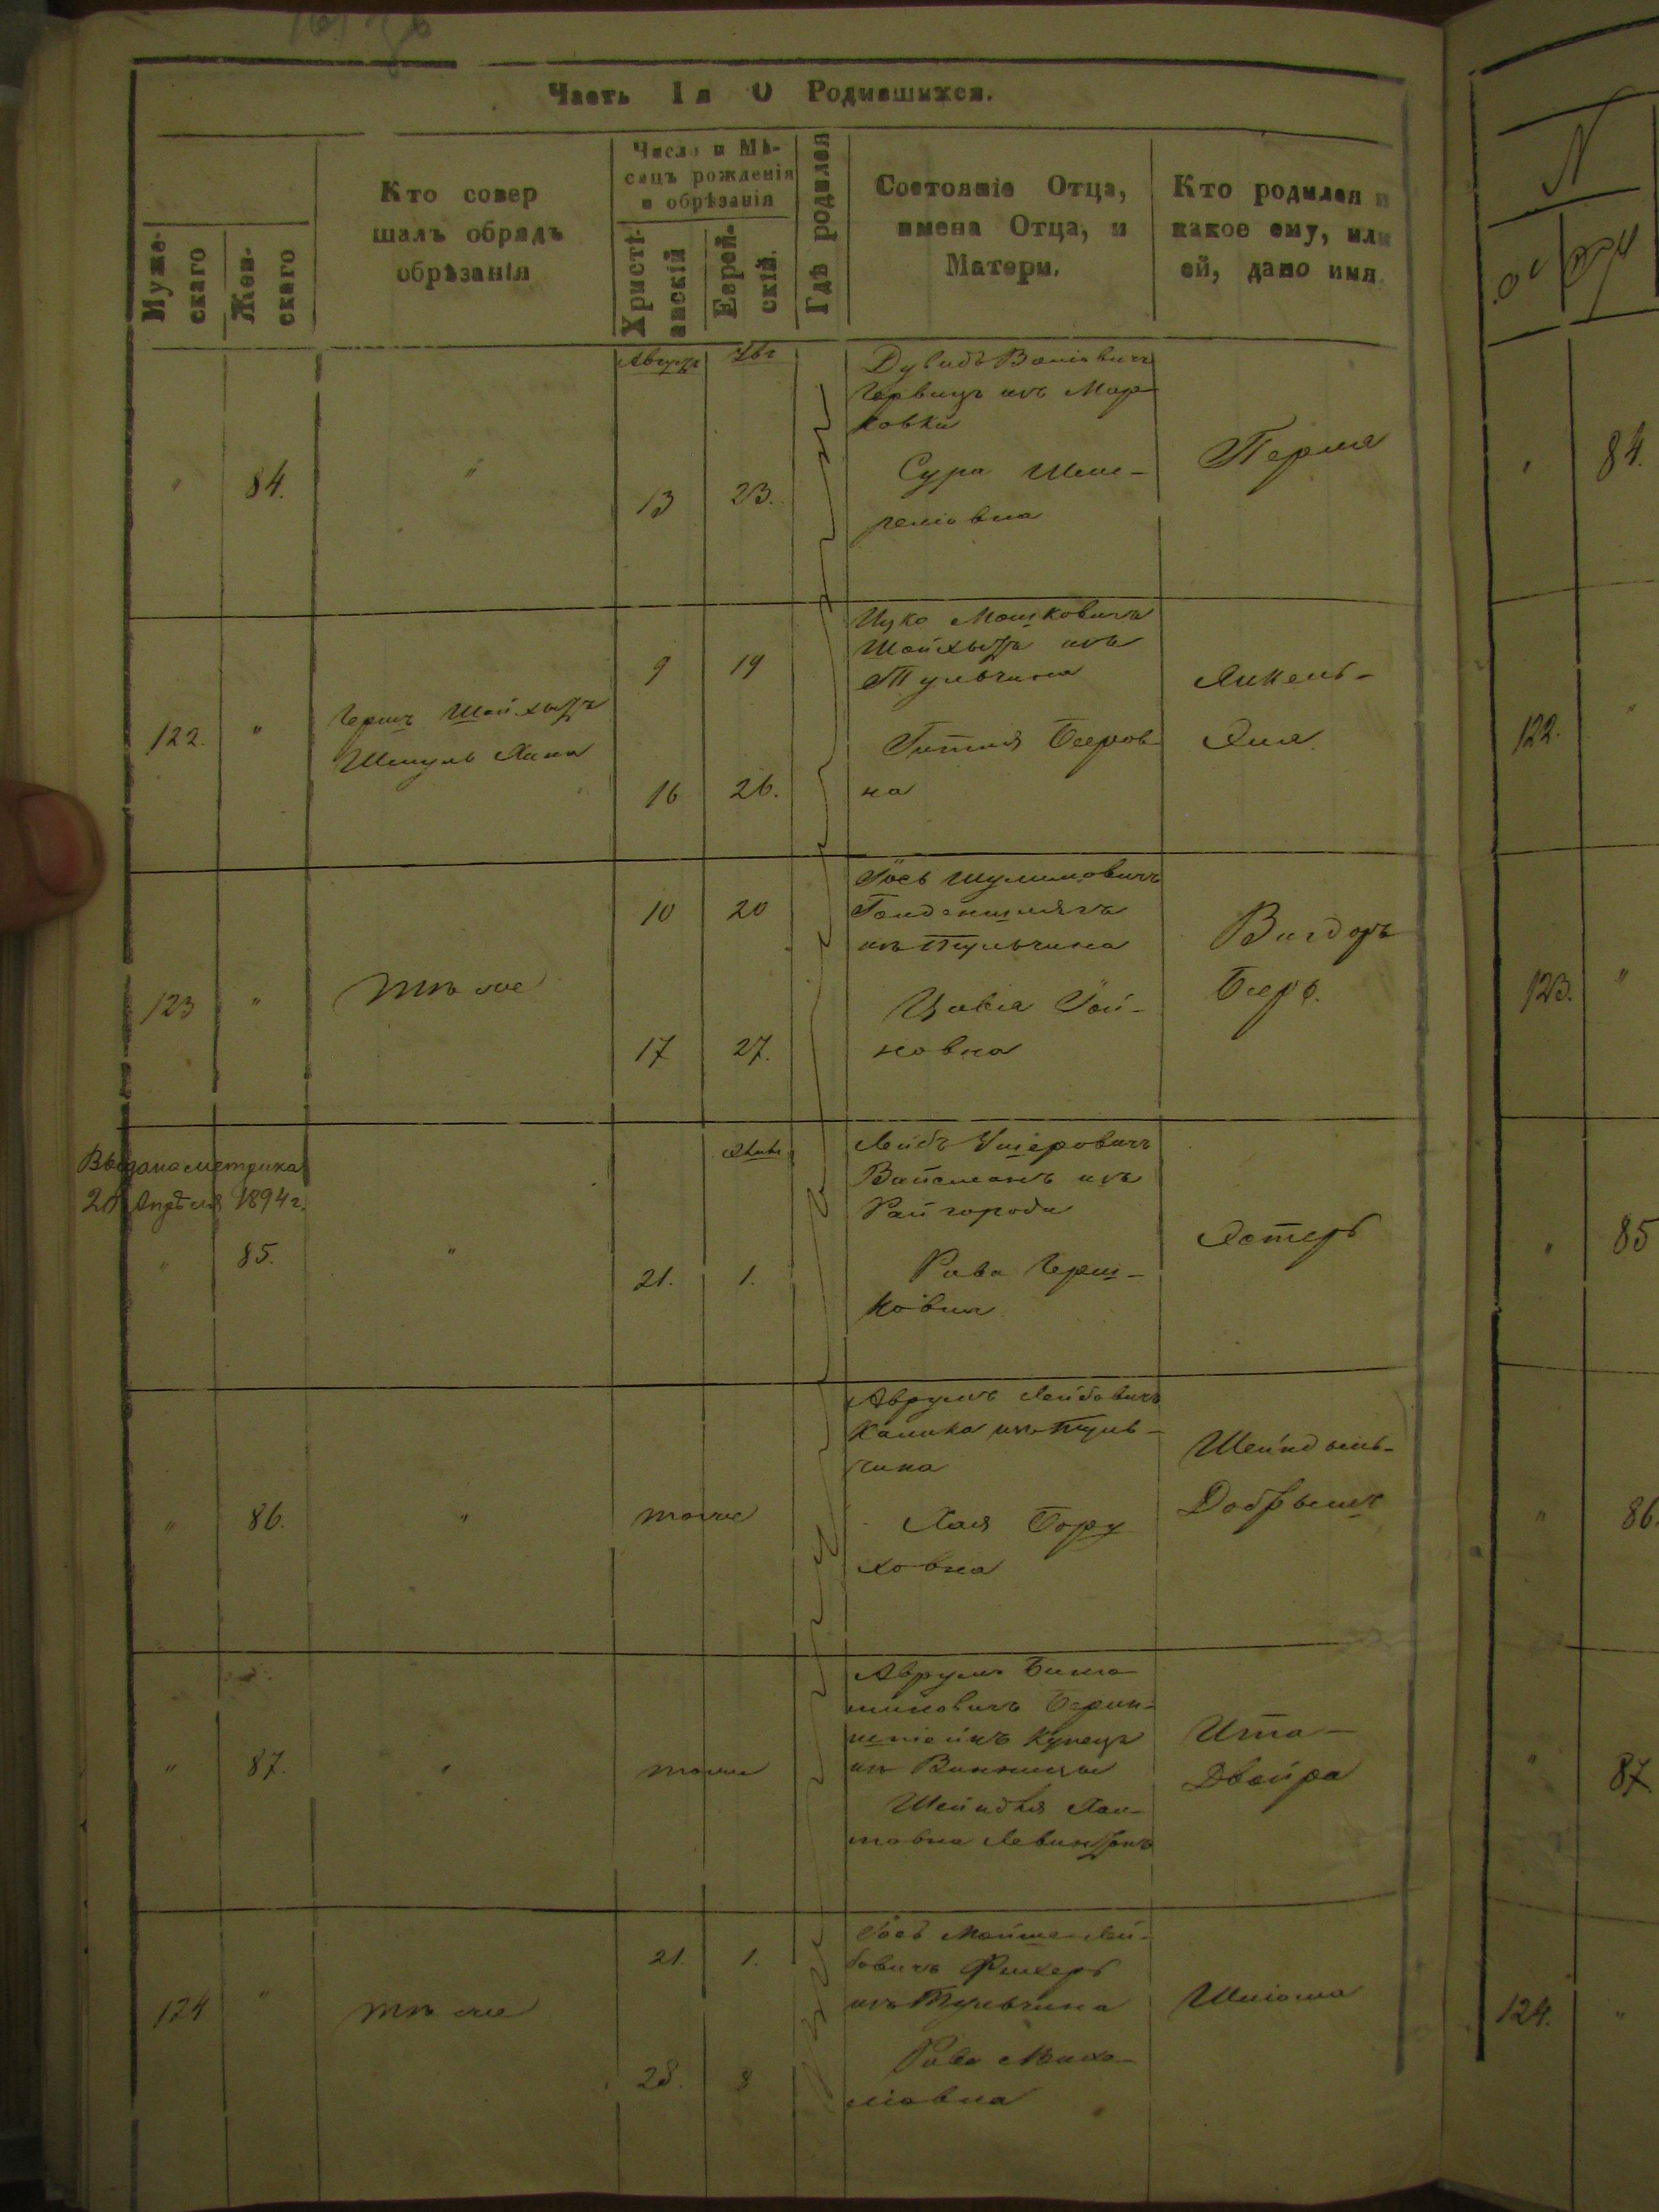 Часть I я О Родившихся.
Муже-
скаго
Жен-
скаго
Кто совер
шалъ обрядъ
обрѣзанія
Число и Мѣ-
сяцъ рожденія
и обрѣзанія
Христі-
анскій
Еврей-
скій.
Гдѣ родился
Состояніе Отца,
имена Отца, и
Матери.
Кто родился и
какое ему, или
ей, дано имя.
"
84.
"
Августа
13
23.
изъ Мар-
ковки
Сура Шмі-
Перля
122.
"
Гершъ Шойхытъ
Шмуль
9
19
16
26.
Ицко Мошковичъ
Шойхытъ изъ
Тульчина
Гитля Беров-
на
Янкель-
123
"
тѣ же
10
20
17
27.
Іось Шулимовичъ
изъ Тульчина
Цивія
новна
Вигдоръ
Беръ.
Выдана метрика
Апрѣля 1894 г.
"
85.
"
21.
1.
Лейбъ Ушеровичъ
Вайсманъ изъ
Райгорода
Рива Герш-
ковна
Эстеръ
"
86.
"
тоже
Аврумъ Лейбовичъ
Калика изъ Туль-
чина
Хая Бору
ховна
Шейндель-
Добрышъ
"
87.
"
тоже
Аврумъ Бинія-
миновичъ Берин-
штейнъ купецъ
изъ Винницы
Шейндля Хаи-
мовна Левинзонъ
Ита-
Двойра
124
"
тѣ же
21.
1.
28.
8
Іось Мойше Лей-
бовичъ Фишеръ
изъ Тульчина
Рива Миха-
ліовна
Шліома
N
"
84.
122.
"
123.
"
"
85
"
86.
"
87.
124.
"